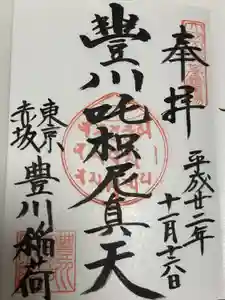 奉拝
平成廿二年
十一月六日
豊川吒枳尼真天
東京
赤坂
豊川稲荷